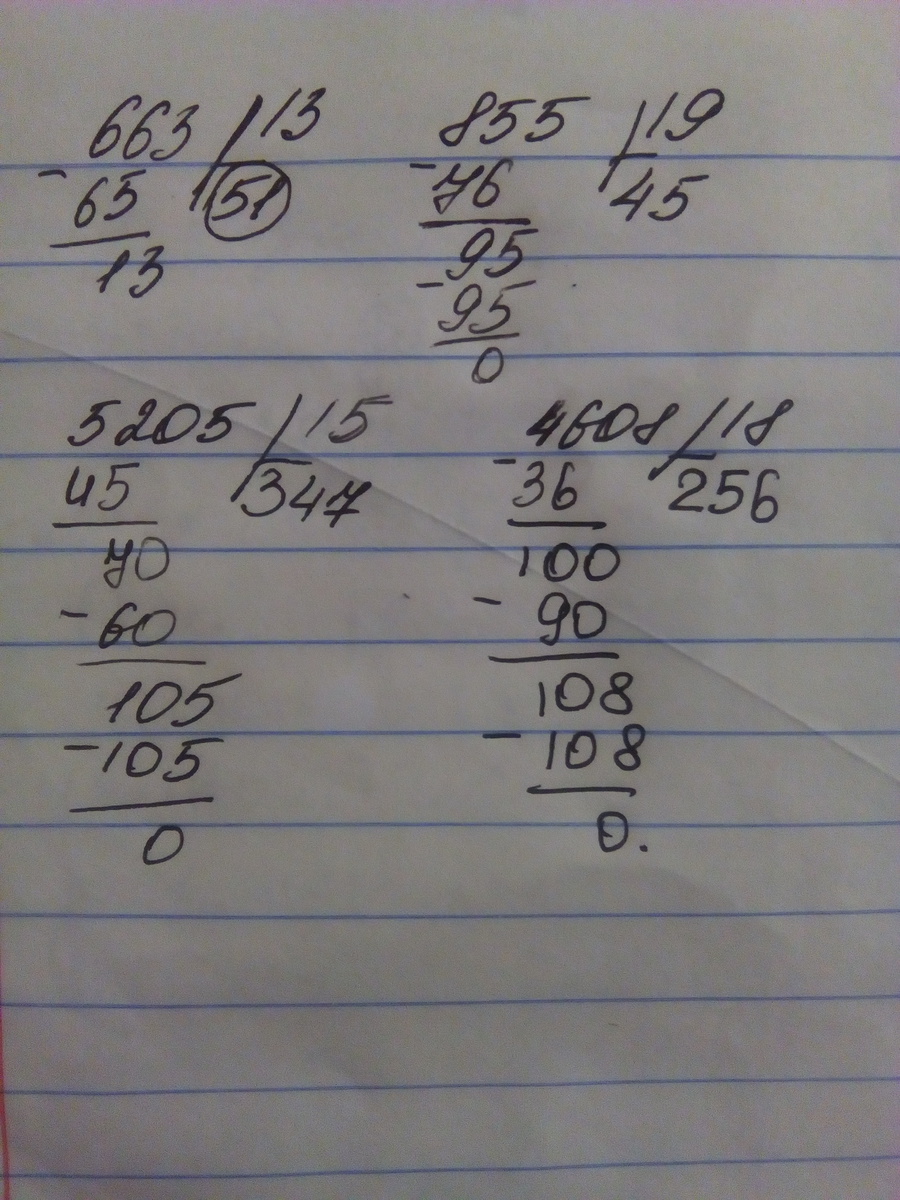 663 13
- 65 51
13
855 19
- 76 45
95
- 95
0
5205 15
45 347
70
- 60
105
- 105
0
4608 18
- 36 256
100
- 90
108
- 108
0.